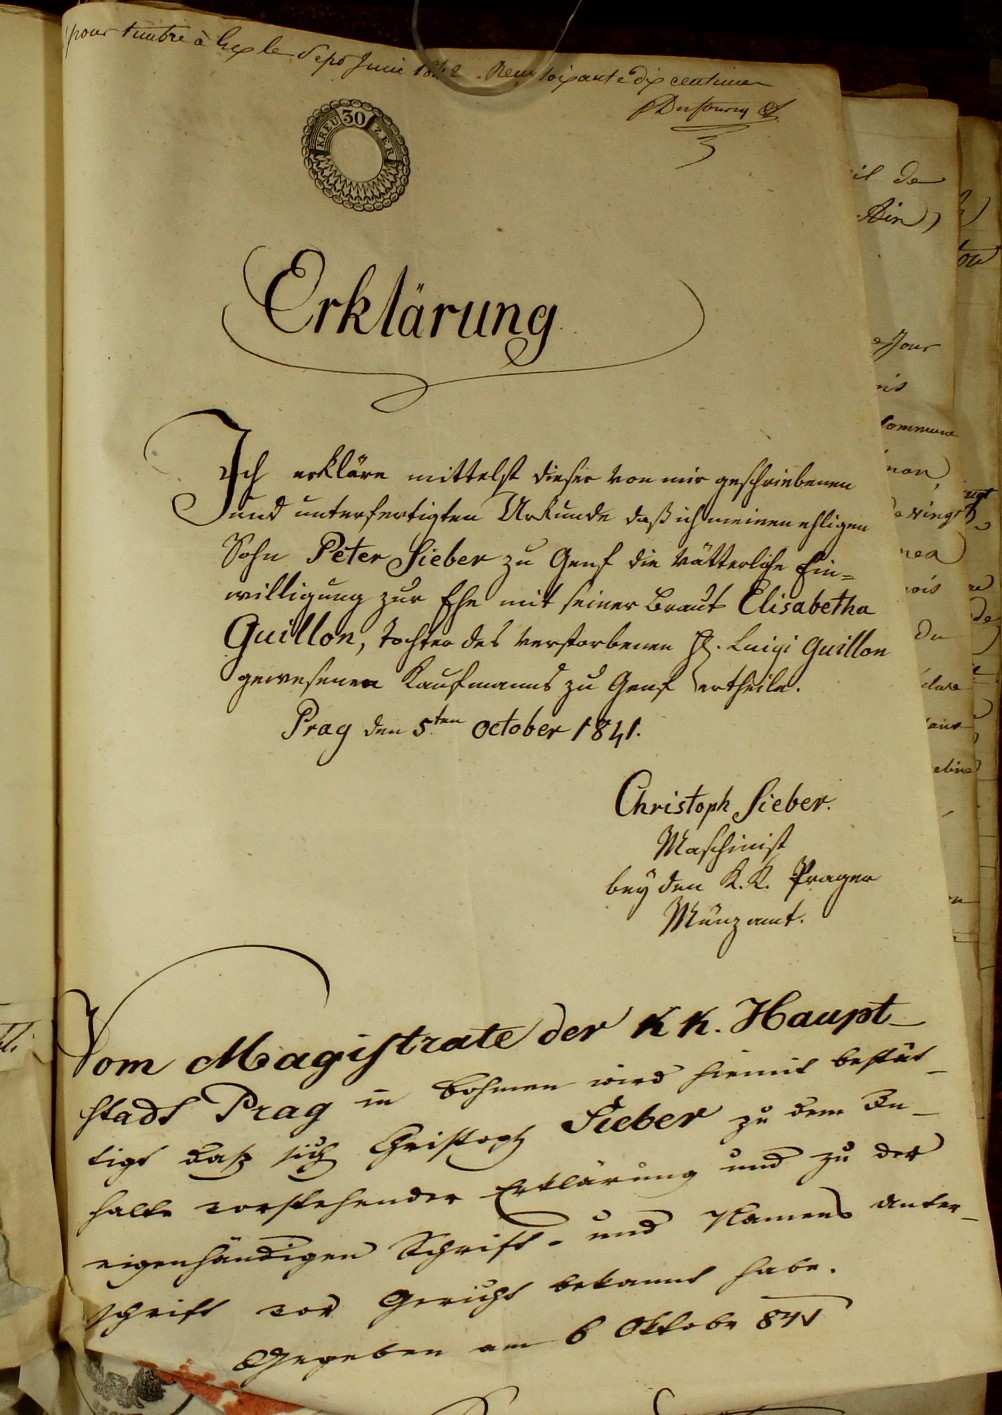 pour timbre à Gex le Sept Juin 1842. Reçu soixante dix centimes
KREU 30 ZER
Erklärung
Ich erkläre mittelst dieser von mir geschriebenen
und unterfertigten Urkunde daß ich meinen ehligen
Sohn Peter Sieber zu Genf die vätterliche Ein=
willigung zur Ehe mit seiner Braut Elisabetha
Guillon, Tochter des verstorbenen H. Luigi Guillon
gewesenen Kaufmanns zu Genf ertheile.
Prag den 5ten October 1841.
Christoph Sieber.
Maschinist
bey den K. K. Prager
Münzamt.
Vom Magistrate der K K. Haupt-
stadt Prag in Böhmen wird hiemit bestät-
tigt daß sich Christoph Sieber zu dem In-
halte vorstehender Erklärung und zu der
eigenhändigen Schrift- und Namens Unter-
schrift vor Gericht bekannt habe.
Gegeben am 6 Oktobr 841
il de
Ain)
Jour
ois
Commune
non,
nea
nois
Du